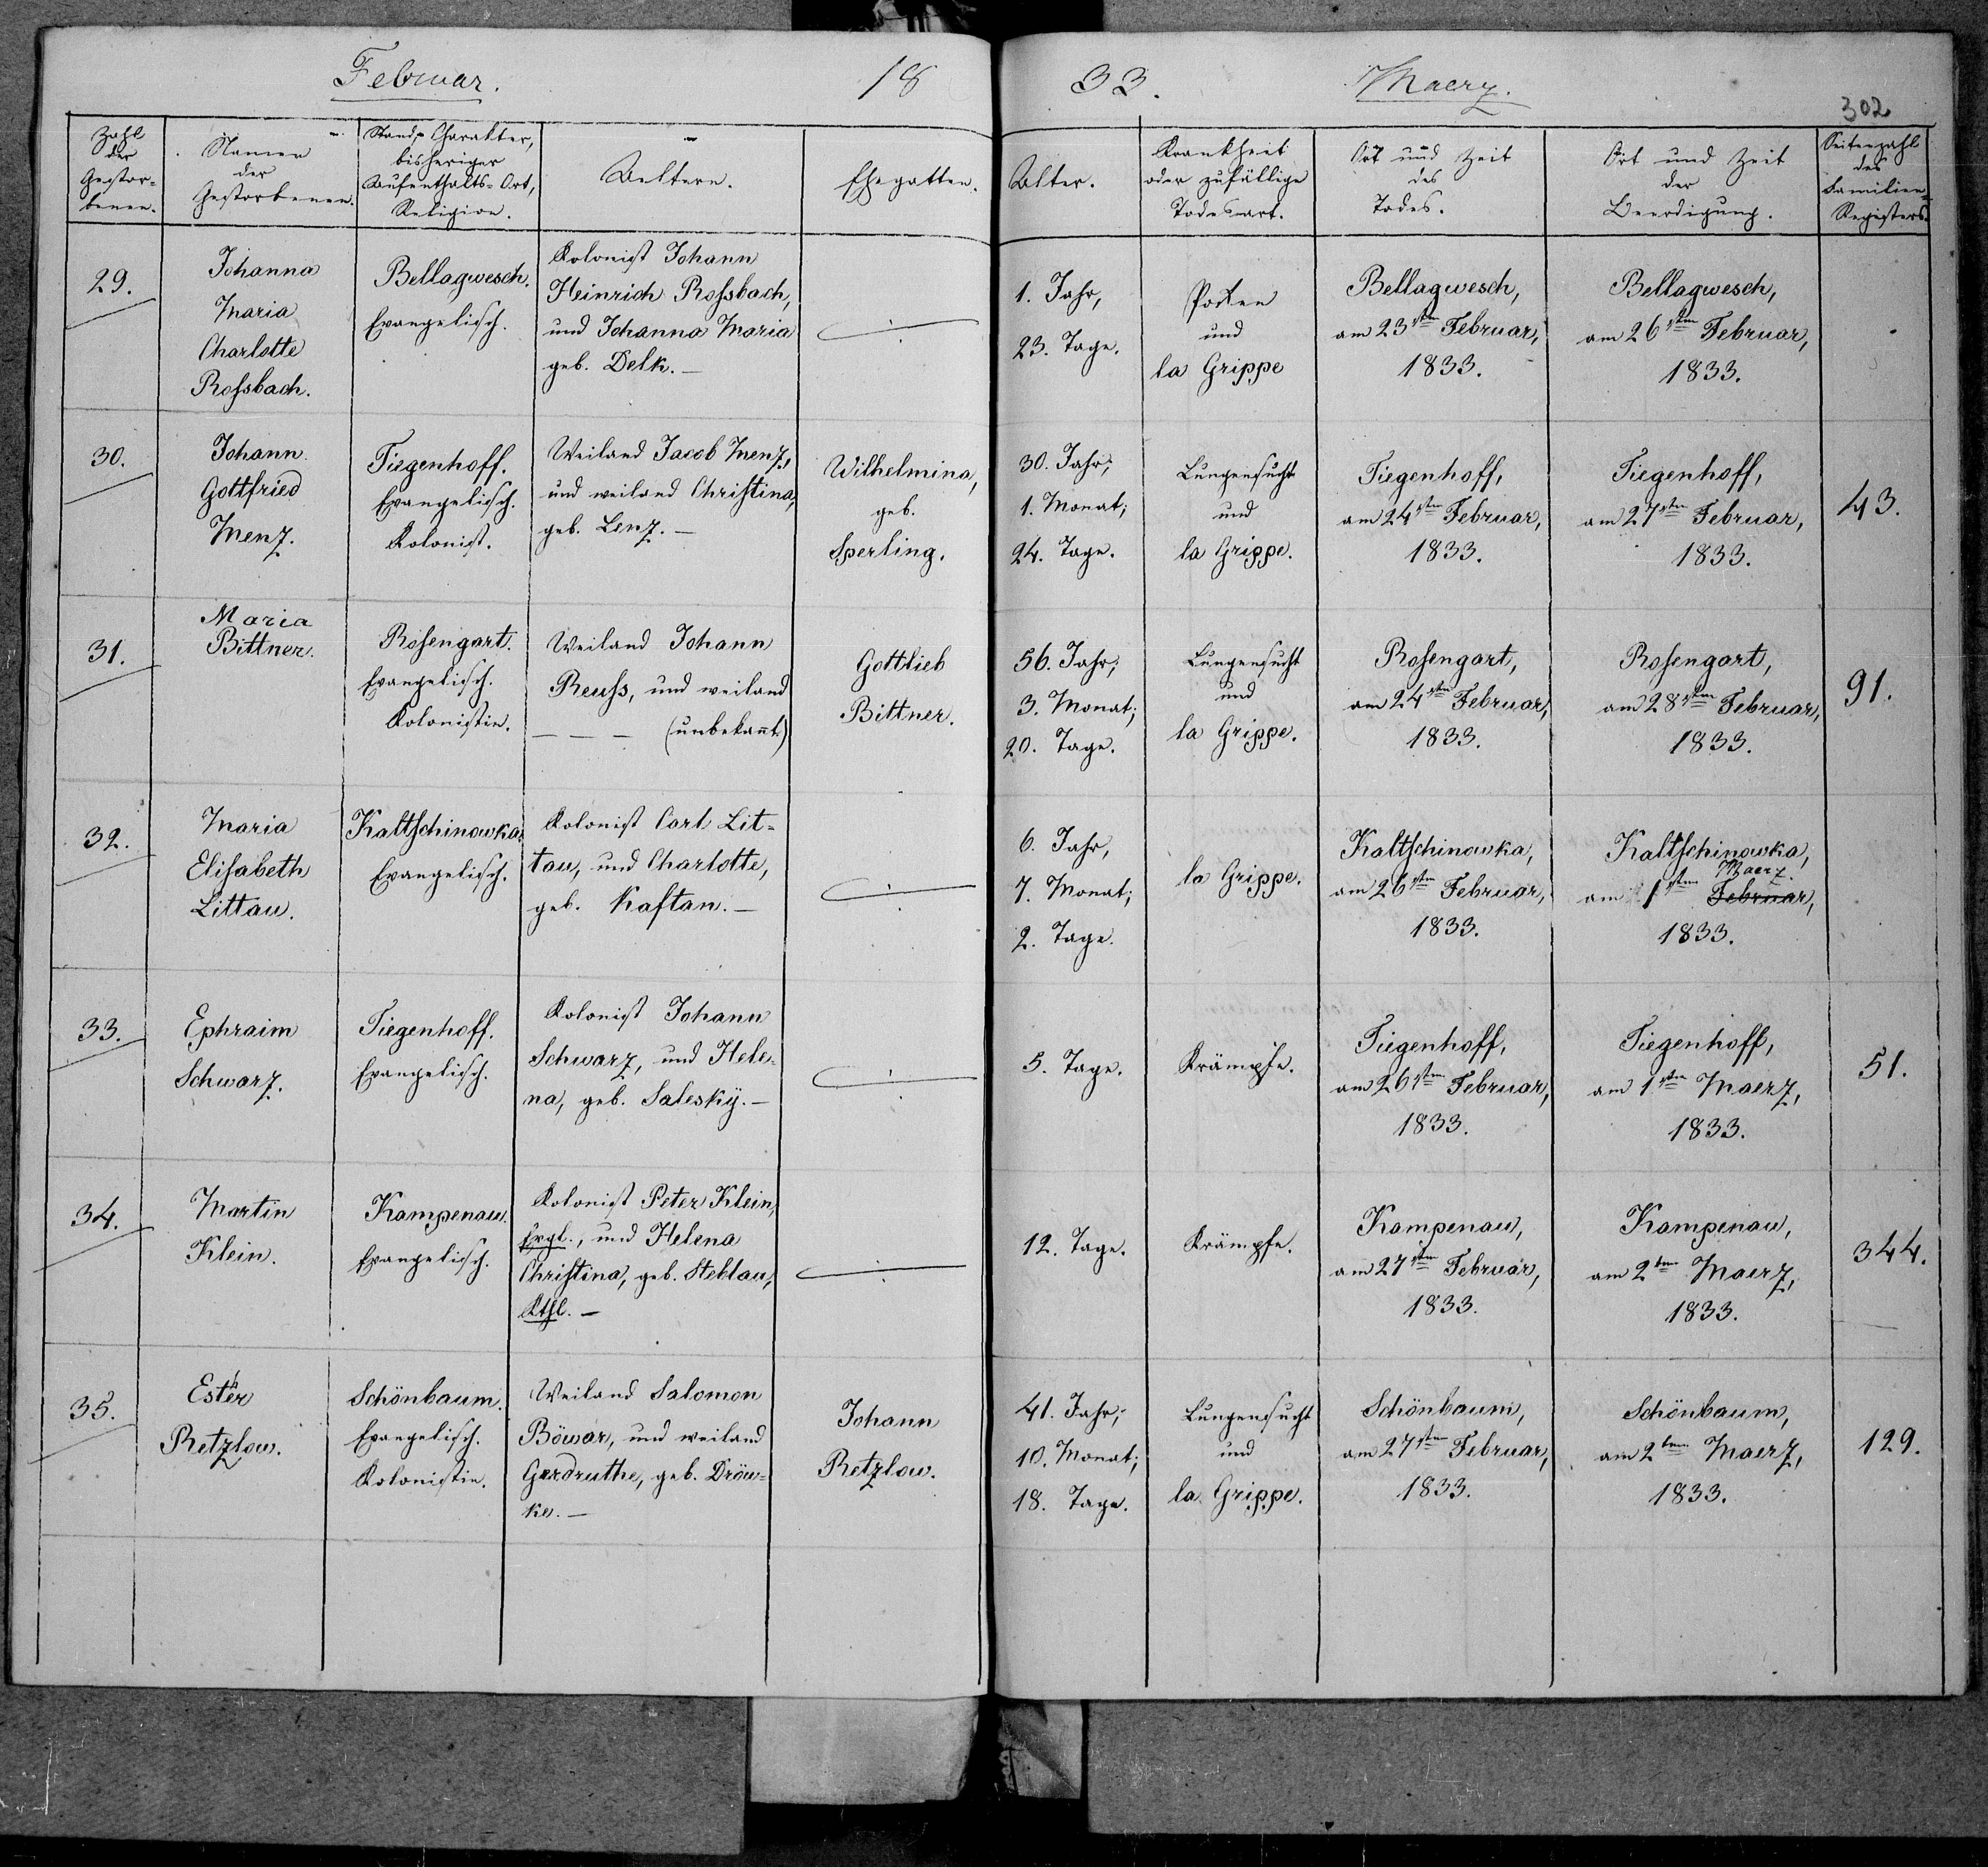 Februar.
18
33.
Maerz.
302
Zahl
der
Gestor-
benen.
Namen
der
Gestorbenen.
Stand, Charakter,
bisheriger
Aufenthalts-Ort,
Religion.
Aeltern.
Ehegatten.
Alter.
Krankheit
oder zufällige
Todesart.
Ort und Zeit
des
Todes.
Ort und Zeit
der
Beerdigung.
Seitenzahl
des
Familien-
Registers.
29.
Johanna
Maria
Charlotte
Rossbach.
Bellagwesch.
Evangelisch.
Kolonist Johann
Heinrich Rossbach,
und Johanna Maria
geb. Delk. —
1. Jahr,
23. Tage.
Pocken
und
la Grippe
Bellagwesch,
am 23sten Februar,
1833.
Bellagwesch,
am 26sten Februar,
1833.
30.
Johann
Gottfried
Menz.
Tiegenhoff.
Evangelisch.
Kolonist.
Weiland Jacob Menz,
und weiland Christina,
geb. Lenz. —
Wilhelmina,
geb.
Sperling.
30. Jahr;
1. Monat;
24. Tage.
Lungensucht
und
la Grippe.
Tiegenhoff,
am 24sten Februar,
1833.
Tiegenhoff,
am 27sten Februar,
1833.
43.
31.
Maria
Bittner.
Rosengart.
Evangelisch.
Kolonistin.
Weiland Johann
Reuss, und weiland
— — — (unbekannt)
Gottlieb
Bittner.
56. Jahr;
3. Monat;
20. Tage.
Lungensucht
und
la Grippe.
Rosengart,
am 24sten Februar,
1833.
Rosengart,
am 28sten Februar,
1833.
91.
32.
Maria
Elisabeth
Littau.
Kaltschinowka.
Evangelisch.
Kolonist Carl Lit-
tau, und Charlotte,
geb. Kaftan. —
6. Jahr,
7. Monat;
2. Tage.
la Grippe.
Kaltschinowka,
am 26sten Februar,
1833.
Kaltschinowka,
Maerz.
am 1sten Februar,
1833.
33.
Ephraim
Schwarz.
Tiegenhoff.
Evangelisch.
Kolonist Johann
Schwarz, und Hele-
na, geb. Salesky. —
5. Tage.
Krämpfe.
Tiegenhoff,
am 26sten Februar,
1833.
Tiegenhoff,
am 1sten Maerz,
1833.
51.
34.
Martin
Klein.
Kampenau.
Evangelisch.
Kolonist Peter Klein,
Evgl., und Helena
Christina, geb. Steblau,
Kthl. —
12. Tage.
Krämpfe.
Kampenau,
am 27sten Februar,
1833.
Kampenau,
am 2ten Maerz,
1833.
344.
35.
Esther
Retzlow.
Schönbaum.
Evangelisch.
Kolonistin.
Weiland Salomon
Böwar, und weiland
Gerdruthe, geb. Dröw-
ke. —
Johann
Retzlow.
41. Jahr;
10. Monat;
18. Tage.
Lungensucht
und
la Grippe.
Schönbaum,
am 27sten Februar,
1833.
Schönbaum,
am 2ten Maerz,
1833.
129.